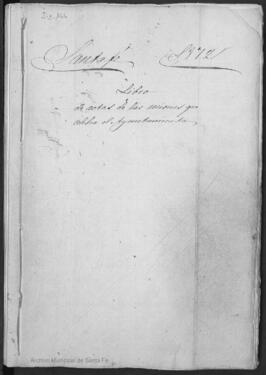 Santafé 1872
Libro
de actas de las sesiones que
celebra el Ayuntamiento,
Archivo Municipal de Santa Fe